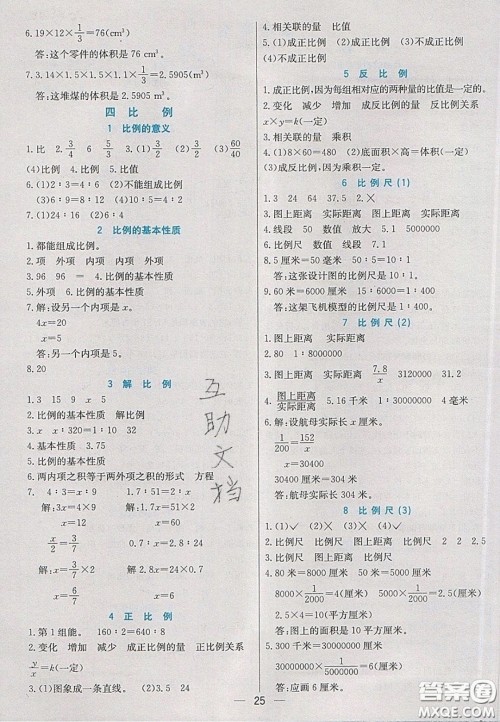 6. 19×12×1/3=76(cm³)
答:这个零件的体积是 76 cm³。
7. 3.14×1.5×1.5×1.1×1/3=2.5905(m³)
答:这堆煤的体积是 2.5905 m³。
四 比 例
1 比例的意义
1. 比 2. 3/4 6 5/3 3. (1)2/3 (2)3/4 (3)60/40
(4)比例 4. 比例 5. 比值
6. (1)2∶3=4∶6 (2)不能组成比例
7. (1)24∶16 (2)6∶4
2 比例的基本性质
1. 都能组成比例。
2. 项 外项 内项 内项 外项
3. 96 96 = 比例的基本性质
5. 外项 6. 比例的基本性质
7. 解:设另一个内项是 x。
4x=20
x=5
答:另一个内项是 5。
8. 20
3 解 比 例
1. 3 15 9 x 5
2. 比例的基本性质 解比例
3. x x∶320=1∶10 32
4. 比例的基本性质 3.75
6. 两内项之积等于两外项之积的形式 方程
7. 4∶3=x∶9 1.7∶51=2∶x
解:3x=4×9 解:1.7x=51×2
x=12 x=60
解:x=3/7×2 解:2.8x=0.7×24
x=6/7 x=6
4 正 比 例
1. 第 1 组能。 160∶2=640∶8
2. 变化 增加 减少 成正比例的量 正比例关系
y/x=k(一定)
3. (1)图象成一条直线。
4. 相关联的量 比值
5. (1)成正比例 (2)成正比例 (3)不成正比例
(4)不成正比例
5 反 比 例
1. 成正比例,因为每组相对应的两种量的比值是一定的。
2. 变化 减少 增加 成反比例的量 反比例关系
x×y=k(一定)
3. 相关联的量 乘积
4. (1)8×60=480 (2)底面积×高=体积(一定)
(3)成反比例,因为乘积一定。
6 比例尺(1)
1. 3 24 64 37.5 x
2. 图上距离 实际距离 图上距离 实际距离
4. 线段 50 数值 放大 5∶1 5000000
6. 比例尺 数值 线段
8. 5 厘米=50 毫米 50∶5=10∶1
答:这张设计图的比例尺是 10∶1。
9. 60 米=6000 厘米 15∶6000=1∶400
答:这架飞机模型的比例尺是 1∶400。
7 比例尺(2)
1. 图上距离 实际距离
2. 80 1∶8000000
3. 实际距离 图上距离 7.8/x 3120000
4. 图上距离/实际距离 5. 16 千米 1∶2000000 4 毫米
6. 解:设航母实际长 x 厘米。
1/200=152/x
x=30400
30400 厘米=304 米
答:航母长 304 米。
8 比例尺(3)
1. (1)✓ (2)✓ (3)✓
2. 比例尺 图上距离 图上距离 比例尺
4. 80 米=8000 厘米 50 米=5000 厘米
2.5×4=10(平方厘米)
答:图上的面积是 10 平方厘米。
5. 300 千米=30000000 厘米
30000000×1/5000000=6(厘米)
答:应画 6 厘米。
互助文档
25
答案圈
MXQE.COM